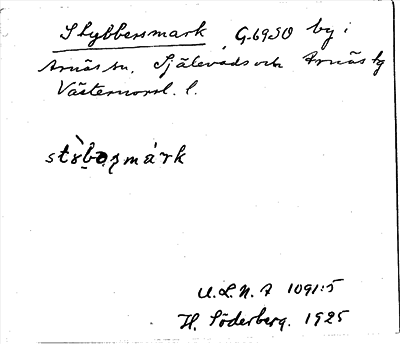 Stybbersmark, G-6950 by i
Arnäs sn. Själevads och Arnäs tg
Västernorrl. l.
märk
U.L.M.A 1091:5
H. Söderberg. 1925